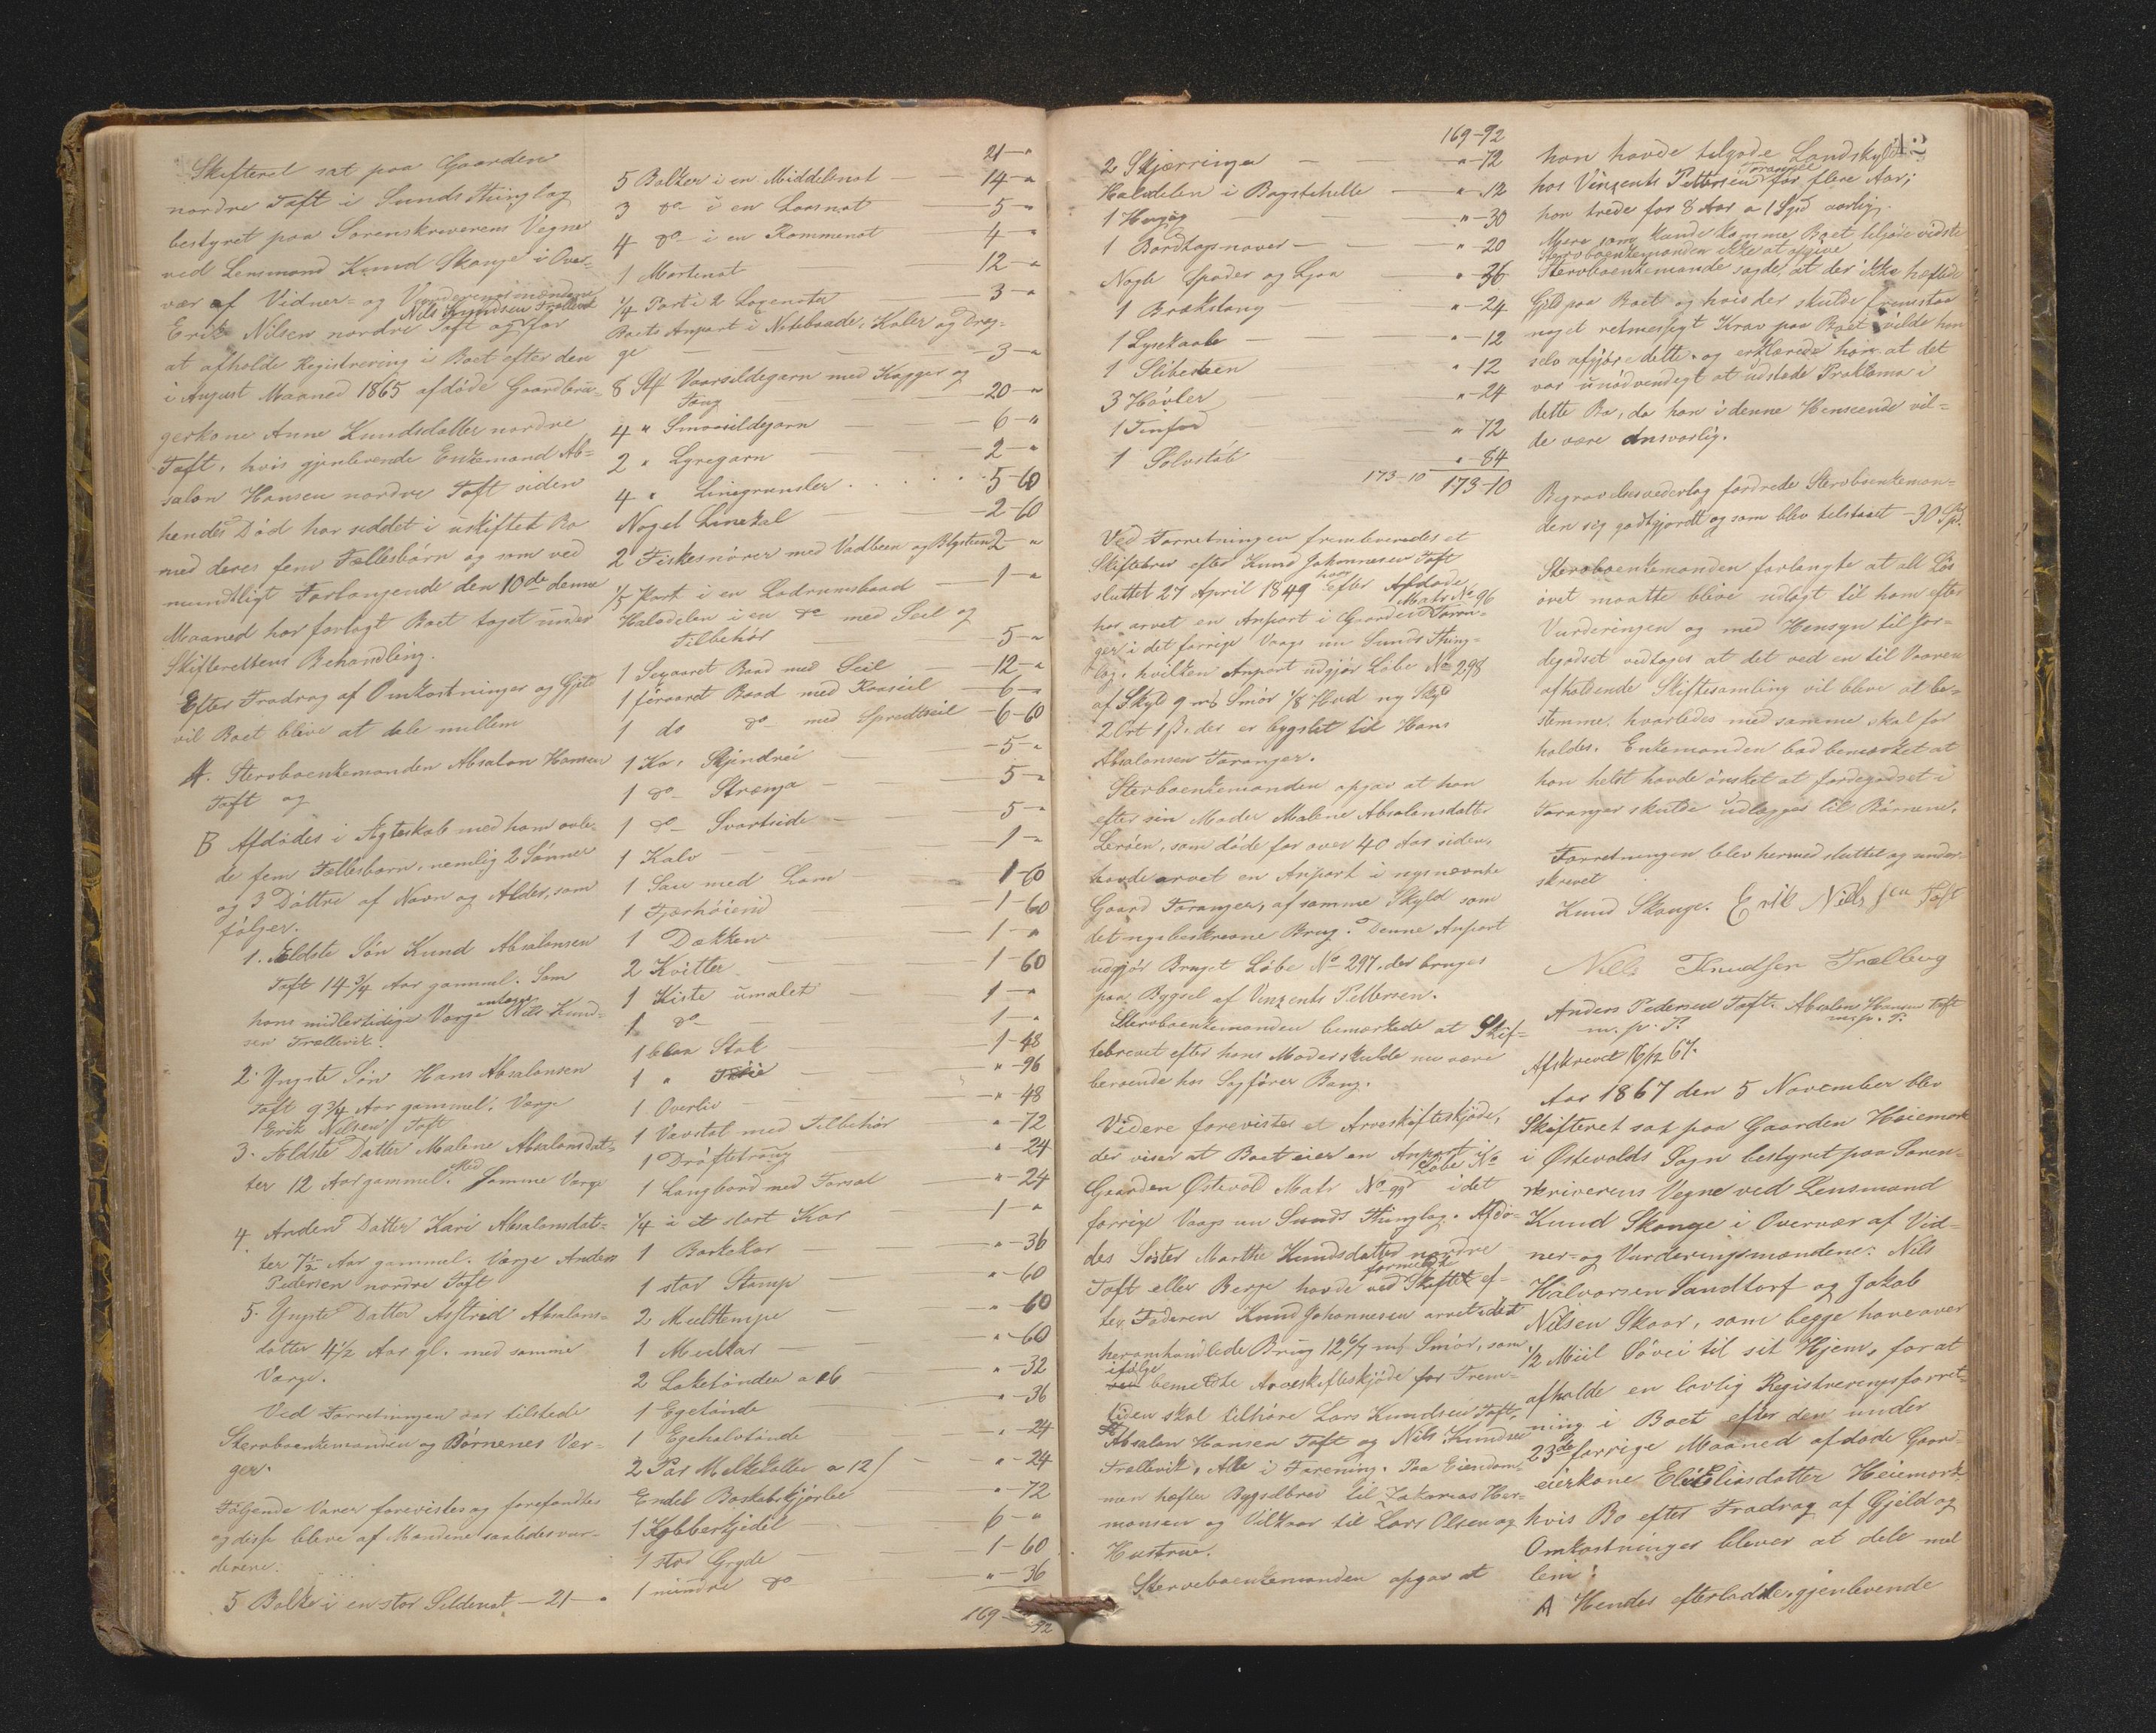 Skifteret sat paa Gaarden
nordre Toft i Sunds Thinglag
bestyret paa Sorenskriverens Vegne
ved Lensmand Knud Skange i Over-
vær af Vidner- og Vurderingsmændene
Nils Knudsen Trællevik
Erik Nilsen nordre Toft og for
at afholde Registrering i Boet efter den
i August Maaned 1865 afdøde Gaardbru-
gerkone Anne Knudsdatter nordre
Toft, hvis gjenlevende Enkemand Ab-
salon Hansen nordre Toft siden
hendes Død har siddet i uskiftet Bo
med deres fem Fællesbørn og som ved
mundtligt Forlangende den 10de denne
Maaned har forlagt Boet taget under
Skifterettens Behandling.
Efter Fradrag af Omkostninger og Gjeld
vil Boet blive at dele mellem
A. Stervboenkemanden Absalon Hansen
Toft og
B Afdødes i Ægteskab med ham avle-
de fem Fællesbørn, nemlig 2 Sønner
og 3 Døttre af Navn og Alder, som
følger.
1. Ældste Søn Knud Absalonsen
Toft 14 3/4 Aar gammel. Som
hans midlertidige Værge antoges Nils Knud-
sen Trællevik.
2. Yngste Søn Hans Absalonsen
Toft 9 3/4 Aar gammel. Værge
Erik Nilsen Toft
3. Ældste Datter Malene Absalonsdat-
ter 12 Aar gammel. Med Samme Værge
4. Anden Datter Kari Absalonsdat-
ter 7 1/2 Aar gammel. Værge Anders
Pedersen nordre Toft
5. Yngste Datter Astrid Absalons-
datter 4 1/2 Aar gl. med samme
Værge.
Ved Forretningen var tilstede
Stervboenkemanden og Børnenes Vær-
ger.
Følgende Varer forevistes og forefandtes
og disse bleve af Mændene saaledes vur-
derede:
5 Bolker i en stor Sildenot — 21 — "
21 — "
5 Bolker i en Middelsnot — 14 — "
3 do i en Laasnot — 5 — "
4 do i en Rommenot — 4 — "
1 Mortenot — 12 — "
1/4 Part i 2 Logenoter — 3 — "
Boets Anpart i Notebaade, Kaler og Dræg-
ge — 3 — "
8 St Vaarsildegarn med Kagger og
Toug — 20 — "
4 " Smaasildegarn — 6 — "
2 " Lyregarn — 2 — "
4 " Linegrunsler . . . . 5-60
Noget Linekal — 2-60
2 Fiskesnører med Vadbeen og Blysteen 2 — "
1/5 Part i en Ladrumsbaad — 1 — "
Halvdelen i en do med Seil og
Tilbehør — 5 — "
1 Sexaaret Baad med Seil — 12 — "
1 firaaret Baad med Raaseil — 6 — "
1 do do med Spredtseil — 6-60
1 Ko, Skjindrei — 5 — "
1 do Strænga — 5 — "
1 do Svartside — 5 — "
1 Kalv — 1 — "
1 Sau med Lam — 1-60
1 Fjærhøiend — 1-60
1 Dækken — 1 — "
2 Kvitter — 1-60
1 Kiste umalet — 1 — "
1 do — 1 — "
1 blaa Stak — 1-48
1 " — " — 96
1 Overliv — " — 48
1 Vævstol med Tilbehør — " — 72
1 Drøftetroug — " — 24
1 Langbord med Forsæl — " — 24
1/4 i et stort Kar — 1 — "
1 Barkekar — " — 36
1 stor Stamp — " — 60
2 Meelstampe — " — 60
1 Meelkar — " — 60
2 Laketønder a 16 — " — 32
1 Egetønde — " — 36
1 Egehalvtønde — " — 24
2 Par Melkekoller a 12 ß — " — 24
Endel Boskabskjørler — " — 72
1 Kobberkjedel — 6 — "
1 stor Gryde — 1-60
1 mindre do — " — 36
169-92
169-92
2 Skjærringer — " — 72
Halvdelen i Bagstehelle — " — 12
1 — " — 30
1 Bordtagsnaver — " — 20
Nogle Spader og Ljaa — " — 36
1 Brækstang — " — 24
1 Lysekaabe — " — 12
1 Slibesteen — " — 12
3 Høvler — " — 24
1 Tinfad — " — 72
1 Sølvstøb — " — 84
173-10 173-10
Ved Forretningen fremleveredes et
Skiftebrev efter Knud Johannesen Toft
sluttet 27 April 1849 hvor Efter Afdøde
har arvet en Anpart i Gaarden Matr No 96 Foran-
ger i det forrige Vaags nu Sunds Thing-
lag, hvilken Anpart udgjør Løbe No 298
af Skyld 9 mk Smør 1/8 Hud ny Skyld
2 Ort 1 ß, der er bygslet til Hans
Absalonsen Foranger.
Stervboenkemanden opgav at han
efter sin Moder Malene Absalonsdatter
Lerøen, som døde for over 40 Aar siden,
havde arvet en Anpart i nysnævnte
Gaard Foranger, af samme Skyld som
det nysbeskrevne Brug. Denne Anpart
udgjør Bruget Løbe No 297, der bruges
paa Bygsel af Vinzents Pettersen.
Stervboenkemanden bemærkede at Skif-
tebrevet efter hans Moder skulde nu være
beroende hos Sagfører Bang.
Videre forevistes et Arveskifteskjøde,
der viser at Boet eier en Anpart i
Gaarden Østevold Matr No 99 Løbe No i det
forrige Vaags nu Sunds Thinglag. Afdø-
des Søster Marthe Knudsdatter nordre
Toft eller Berge havde formeldte ved Skiftet ef-
ter Faderen Knud Johannesen arvet i det
heromhandlede Brug 12 6/7 mk Smør, som
ifølge bemeldte Arveskifteskjøde for Frem-
tiden skal tilhøre Lars Knudsen Toft,
Absalon Hansen Toft og Nils Knudsen
Trællevik, Alle i Forening. Paa Eiendom-
men hæfter Bygselbrev til Zakarias Her-
mansen og Vilkaar til Lars Olsen og
Hustrue.
Stervboenkemanden opgav at
han havde tilgode Landskyld
hos Vinzents Pettersen Foranger for flere Aar;
han trede for 8 Aar a 1 Spd aarlig.
Mere som kunde komme Boet tilgode vidste
Stervboenkemanden ikke at opgive
Stervboenkemanden sagde, at der ikke heftede
Gjeld paa Boet og hvis der skulde fremstaa
noget retmessigt Krav paa Boet vilde han
selv afgjøre dette. og erklærede han at det
var unødvendigt at udstede Proklama i
dette Bo, da han i denne Henseende vil-
de være Ansvarlig.
Begravelsesvederlag fordrede Stervboenkeman-
den sig godtgjordt og som blev tilstaaet — 30 Spd.
Stervboenkemanden forlangte at alt Løs
øret maatte blive udlagt til ham efter
Vurderingen og med Hensyn til Jor-
degodset vedtoges at det ved en til Vaaren
afholdende Skiftesamling vil blive at be-
stemme, hvorledes med samme skal for
holdes. Enkemanden bad bemærket at
han helst havde ønsket at Jordegodset i
Foranger skulde udlægges til Børnene.
Forretningen blev hermed sluttet og under-
skrevet
Knud Skange. Erik Nielsen Toft
Nills Knudsen Trællevig
Anders Pedersen Toft. Absalon Hansen Toft
m. p. P. m. p. P.
Afskrevet 16/12 67.
Aar 1867 den 5 November blev
Skifteret sat paa Gaarden Heiemork
i Østevolds Sogn bestyret paa Soren-
skriverens Vegne ved Lensmand
Knud Skange i Overvær af Vid-
ner- og Vurderingsmændene: Nils
Halvorsen Sandtorf og Jakob
Nilsen Skaar, som begge have over
1/2 Miil Søvei til sit Hjem, for at
afholde en lovlig Registreringsforret-
ning i Boet efter den under
23de forrige Maaned afdøde Gaard-
eierkone Eli Eliasdatter Heiemork
hvis Bo efter Fradrag af Gjeld og
Omkostninger bliver at dele mel
lem:
A Hendes efterladte, gjenlevende